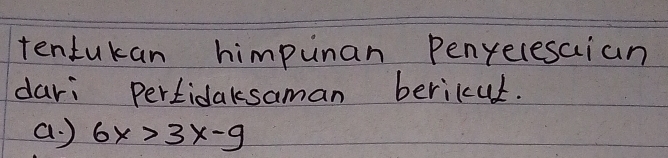 tentukan himpunan Penyelesaian
dari Pertidaksaman berikut.
a.) 6x > 3x - 9